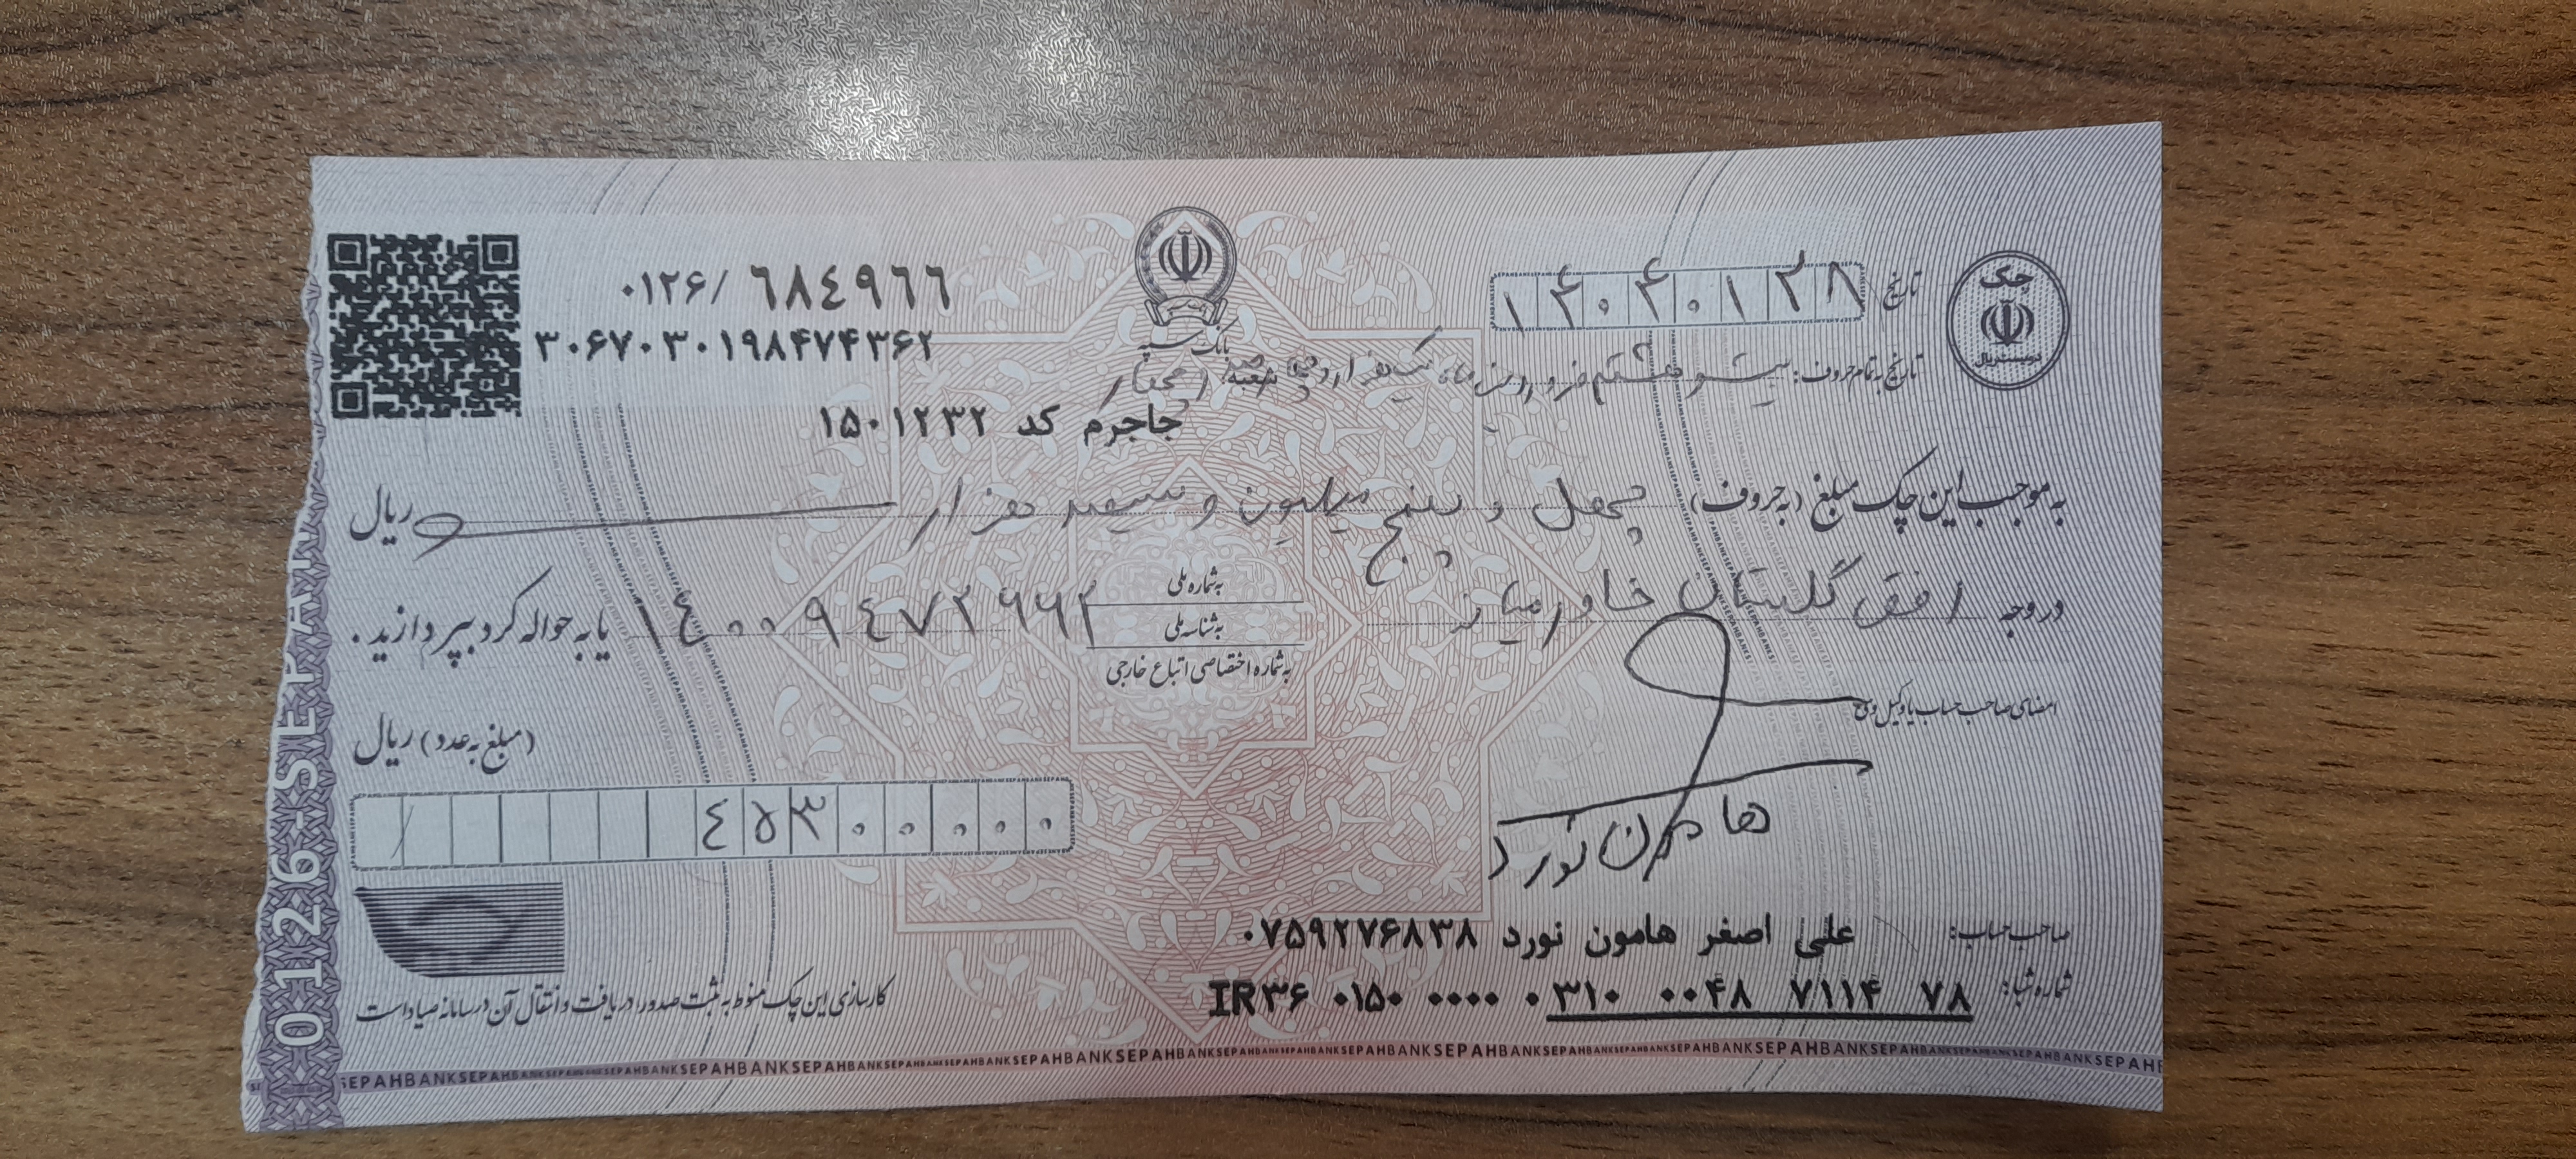 چک
دویست ریال
تاریخ ۱۴۰۴۰۱۲۸
۰۱۲۶/ ٦٨٤٩٦٦
۳۰۶۷۰۳۰۱۹۸۴۷۴۳۶۲
بانک سپه
تاریخ به تمام حروف: بیست و هشتم فروردین ماه یکهزار و چهارصد و چهار
شعبه
جاجرم کد ۱۵۰۱۲۳۲
به موجب این چک مبلغ (به حروف) چهل و پنج میلیون و سیصد هزار ریال
در وجه افق گلستان خاورمیانه
به شماره ملی
به شناسه ملی
به شماره اختصاصی اتباع خارجی
یا به حواله کرد بپردازید.
امضای صاحب حساب یا وکیل وی
(مبلغ به عدد) ریال
۴۵۳۰۰۰۰۰
هامون نورد
صاحب حساب: علی اصغر هامون نورد ۰۷۵۹۲۷۶۸۳۸
شماره شبا: IR۳۶ ۰۱۵۰ ۰۰۰۰ ۰۳۱۰ ۰۰۴۸ ۷۱۱۴ ۷۸
کارسازی این چک منوط به ثبت صدور، دریافت و انتقال آن در سامانه صیاد است
0126-SEPAH
SEPAHBANKSEPAHBANKSEPAHBANKSEPAHBANK